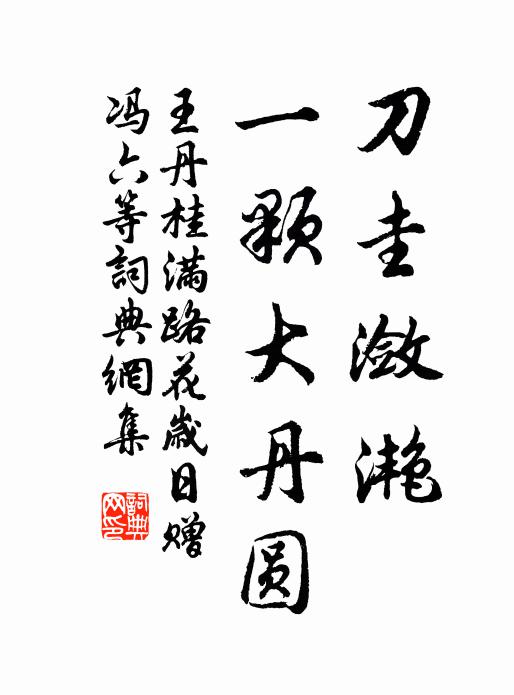 刀圭潋滟
一颗大丹圆
王丹桂满路花歳日赠
冯六等詞典網集
詞典网印